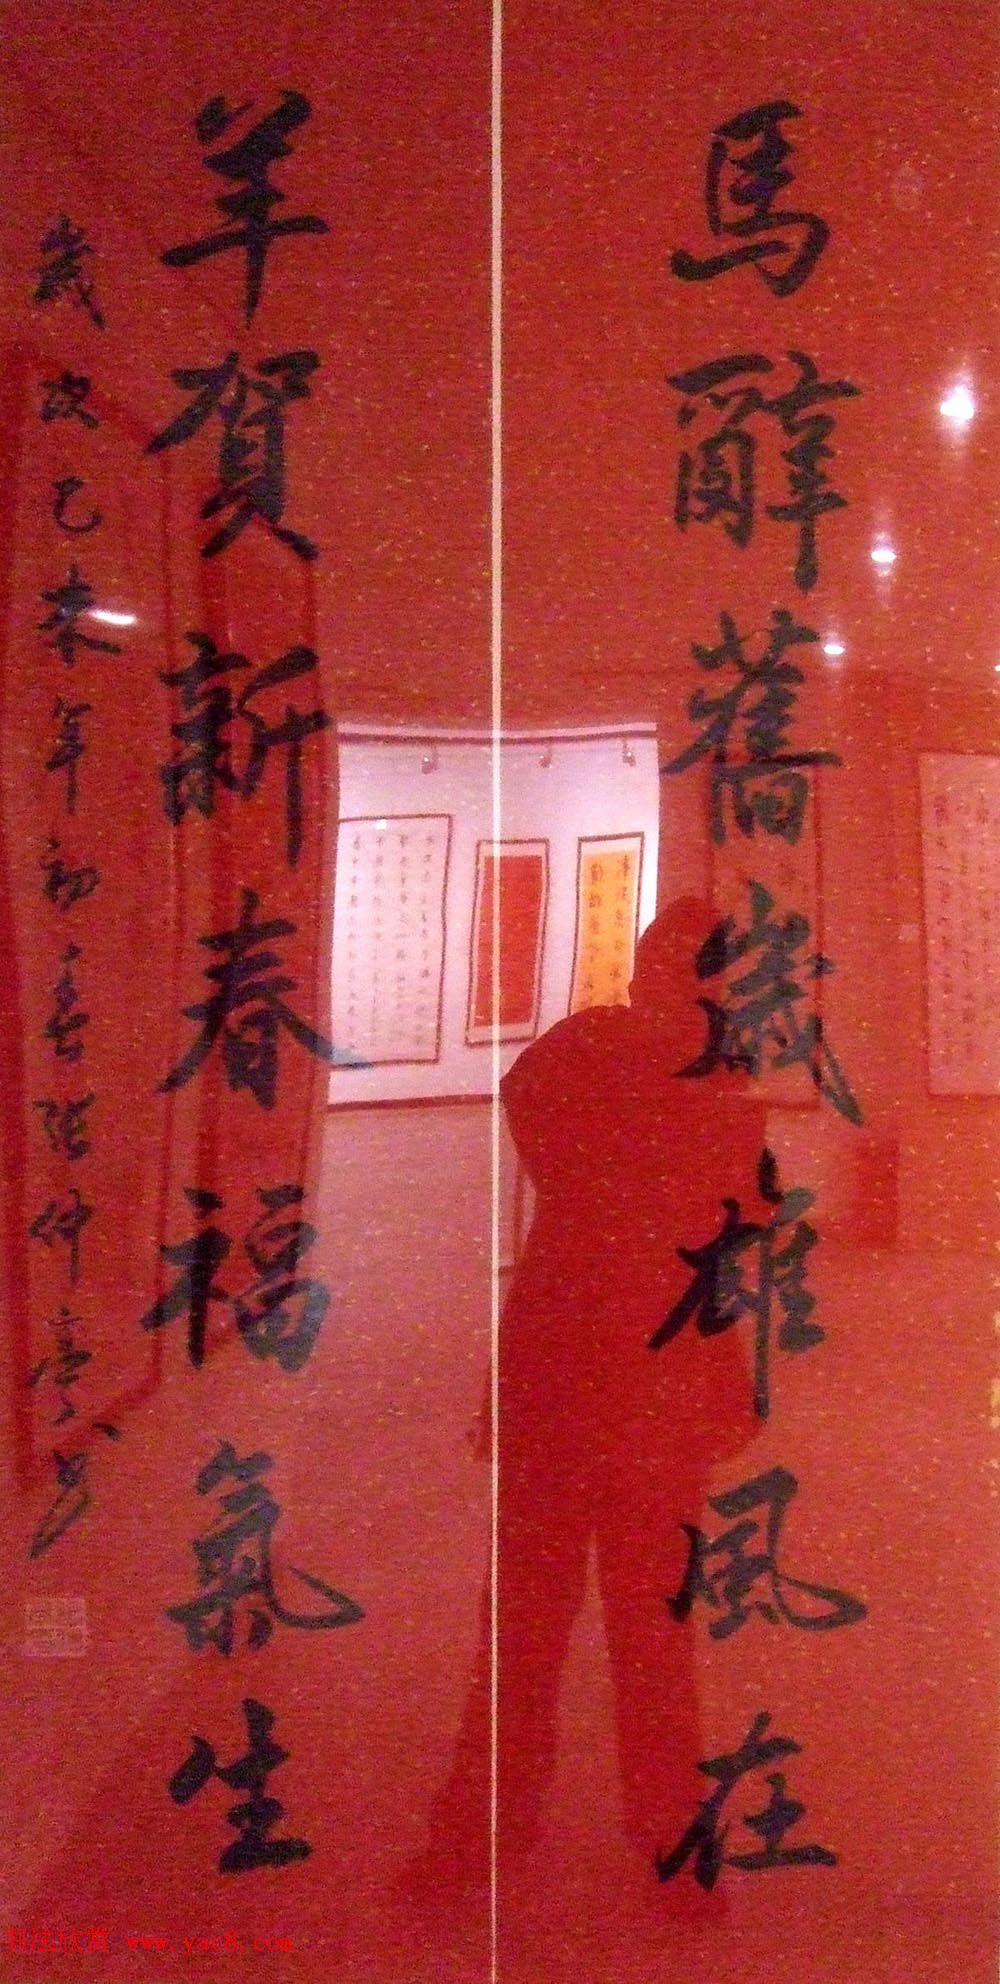 馬辭舊歲雄風在
羊賀新春福氣生
歲次乙未年初春張仲亭書
书法欣赏 www.yac8.com